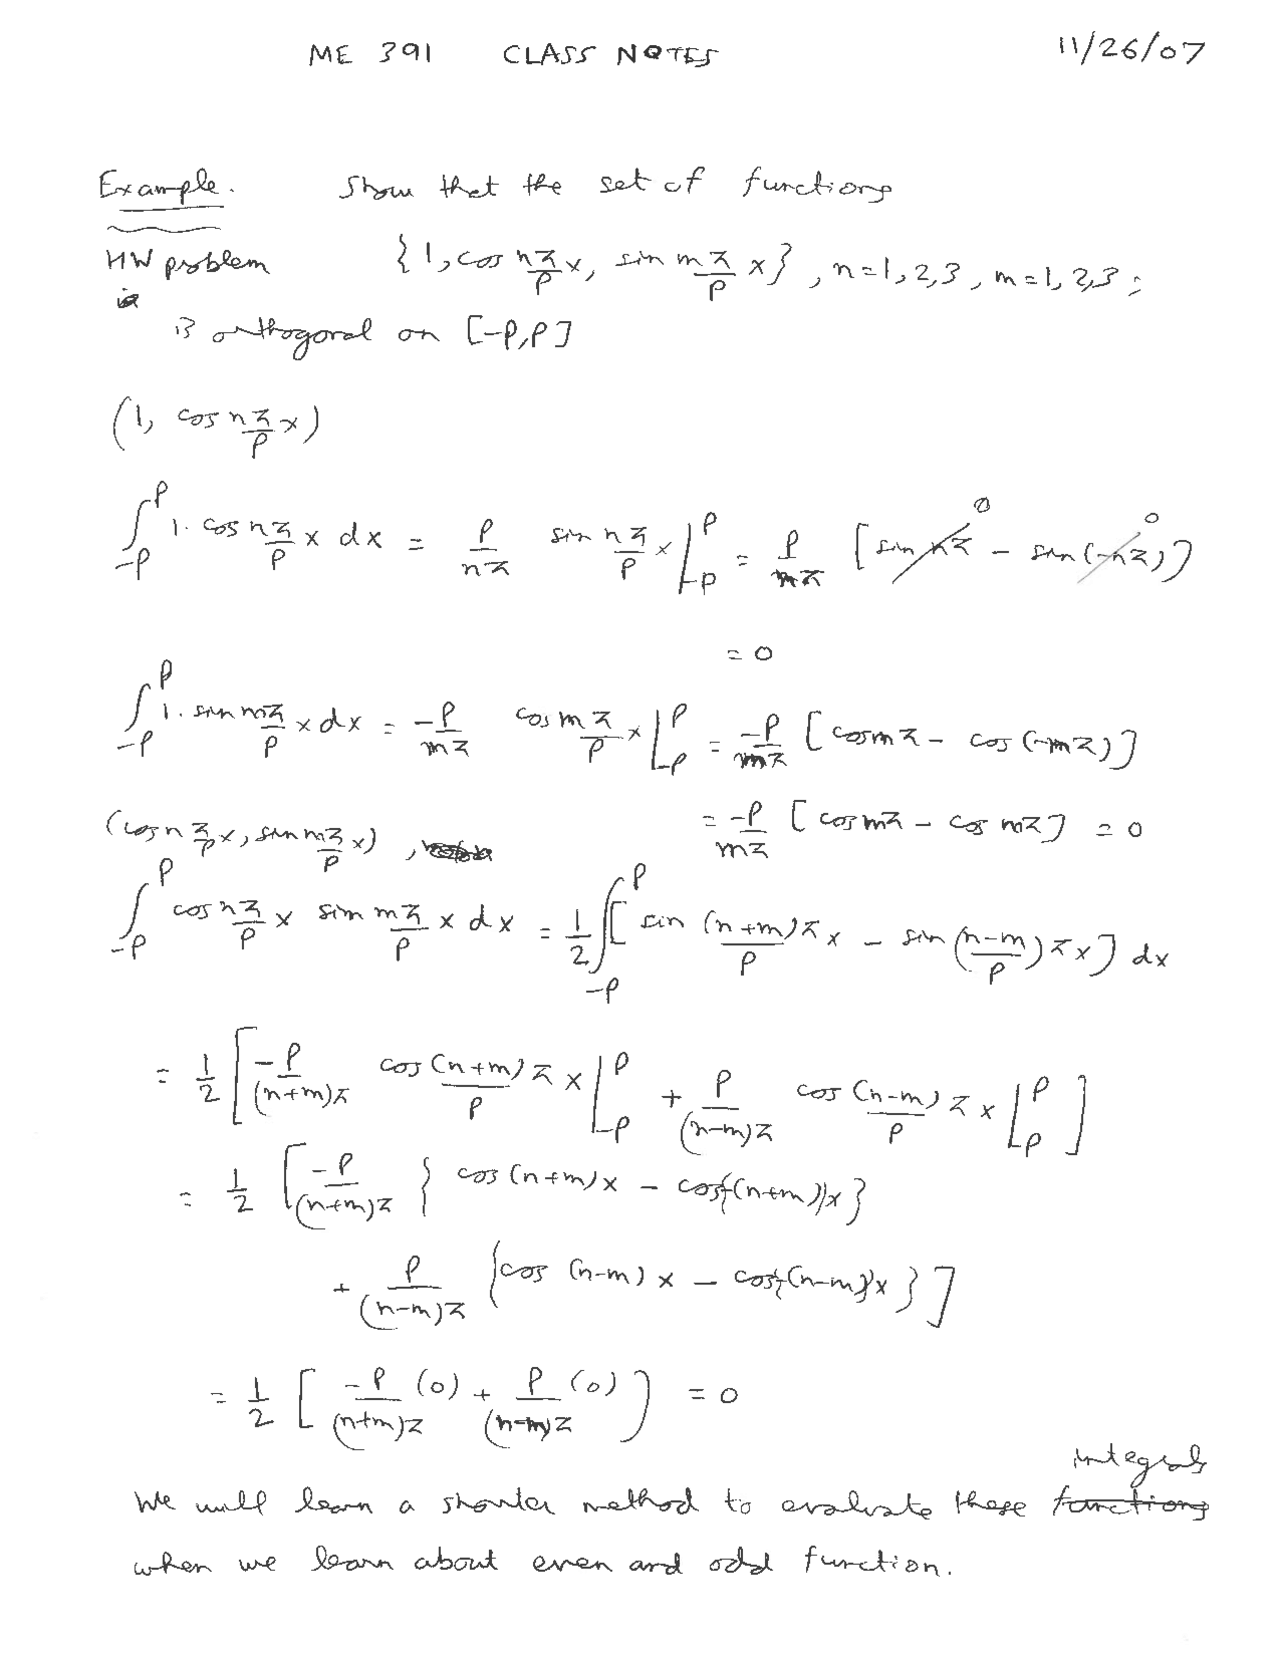 ME 391 CLASS NOTES 11/26/07
Example. Show that the set of functions
HW problem {1, cos nπ/p x, sin mπ/p x}, n=1,2,3, m=1,2,3;
is orthogonal on [-p,p]
(1, cos nπ/p x)
∫_{-p}^{p} 1. cos nπ/p x dx = p/nπ sin nπ/p x |_{-p}^{p} = p/mπ [sin nπ - sin(-nπ)] 0 0
= 0
∫_{-p}^{p} 1. sin mπ/p x dx = -p/mπ cos mπ/p x |_{-p}^{p} = -p/mπ [cos mπ - cos(-mπ)]
= -p/mπ [cos mπ - cos mπ] = 0
(cos nπ/p x, sin mπ/p x),
∫_{-p}^{p} cos nπ/p x sin mπ/p x dx = 1/2 ∫_{-p}^{p} [sin (n+m)π/p x - sin (n-m/p)πx] dx
= 1/2 [-p/(n+m)π cos (n+m)π/p x |_{-p}^{p} + p/(n-m)π cos (n-m)π/p x |_{-p}^{p}]
= 1/2 [-p/(n+m)π {cos (n+m)x - cos{-(n+m)}x}
+ p/(n-m)π {cos (n-m)x - cos{-(n-m)}x}]
= 1/2 [-p/(n+m)π (0) + p/(n-m)π (0)] = 0
integrals
We will learn a shorter method to evaluate these functions
when we learn about even and odd function.